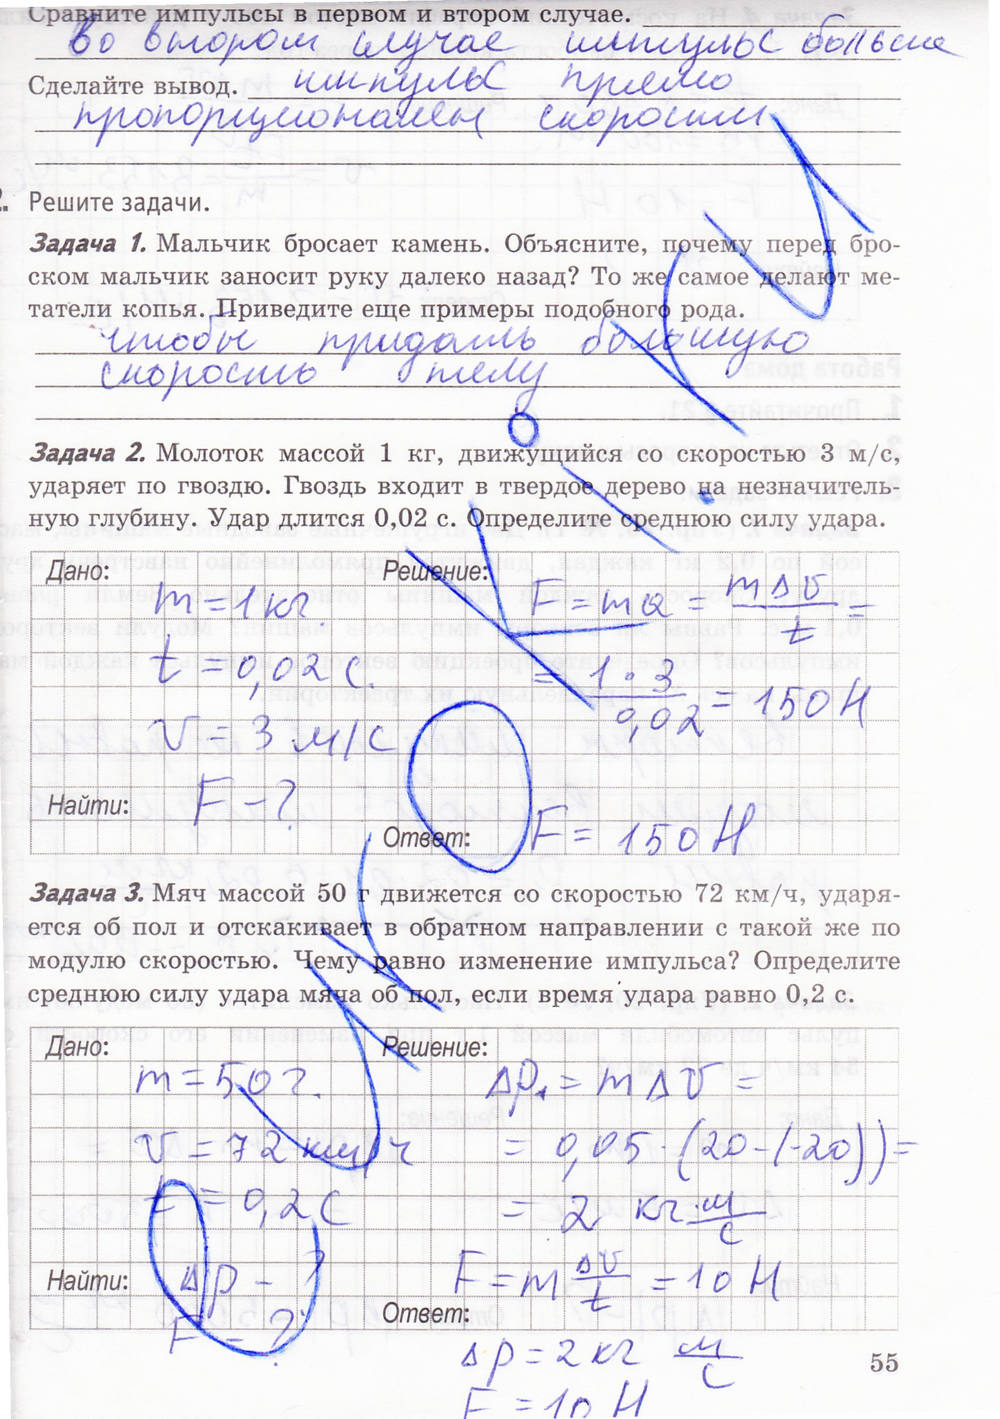 Сравните импульсы в первом и втором случае.
Во втором случае импульс больше
Сделайте вывод. импульс прямо
пропорционален скорости
Решите задачи.
Задача 1. Мальчик бросает камень. Объясните, почему перед бро-
ском мальчик заносит руку далеко назад? То же самое делают ме-
татели копья. Приведите еще примеры подобного рода.
чтобы придать большую
скорость телу
Задача 2. Молоток массой 1 кг, движущийся со скоростью 3 м/с,
ударяет по гвоздю. Гвоздь входит в твердое дерево на незначитель-
ную глубину. Удар длится 0,02 с. Определите среднюю силу удара.
Дано: Решение:
m = 1 кг. F = ma = mΔv/t =
t = 0,02 с. = 1·3/0,02 = 150 Н
v = 3 м/с
Найти: F - ?
Ответ: F = 150 Н
Задача 3. Мяч массой 50 г движется со скоростью 72 км/ч, ударя-
ется об пол и отскакивает в обратном направлении с такой же по
модулю скоростью. Чему равно изменение импульса? Определите
среднюю силу удара мяча об пол, если время удара равно 0,2 с.
Дано: Решение:
m = 50 г. Δp = mΔv =
v = 72 км/ч = 0,05·(20-(-20)) =
t = 0,2 с = 2 кг·м/с
Найти: Δp - ? F = m Δv/t = 10 Н
F = ? Ответ:
Δp = 2 кг м/с
55
F = 10 Н